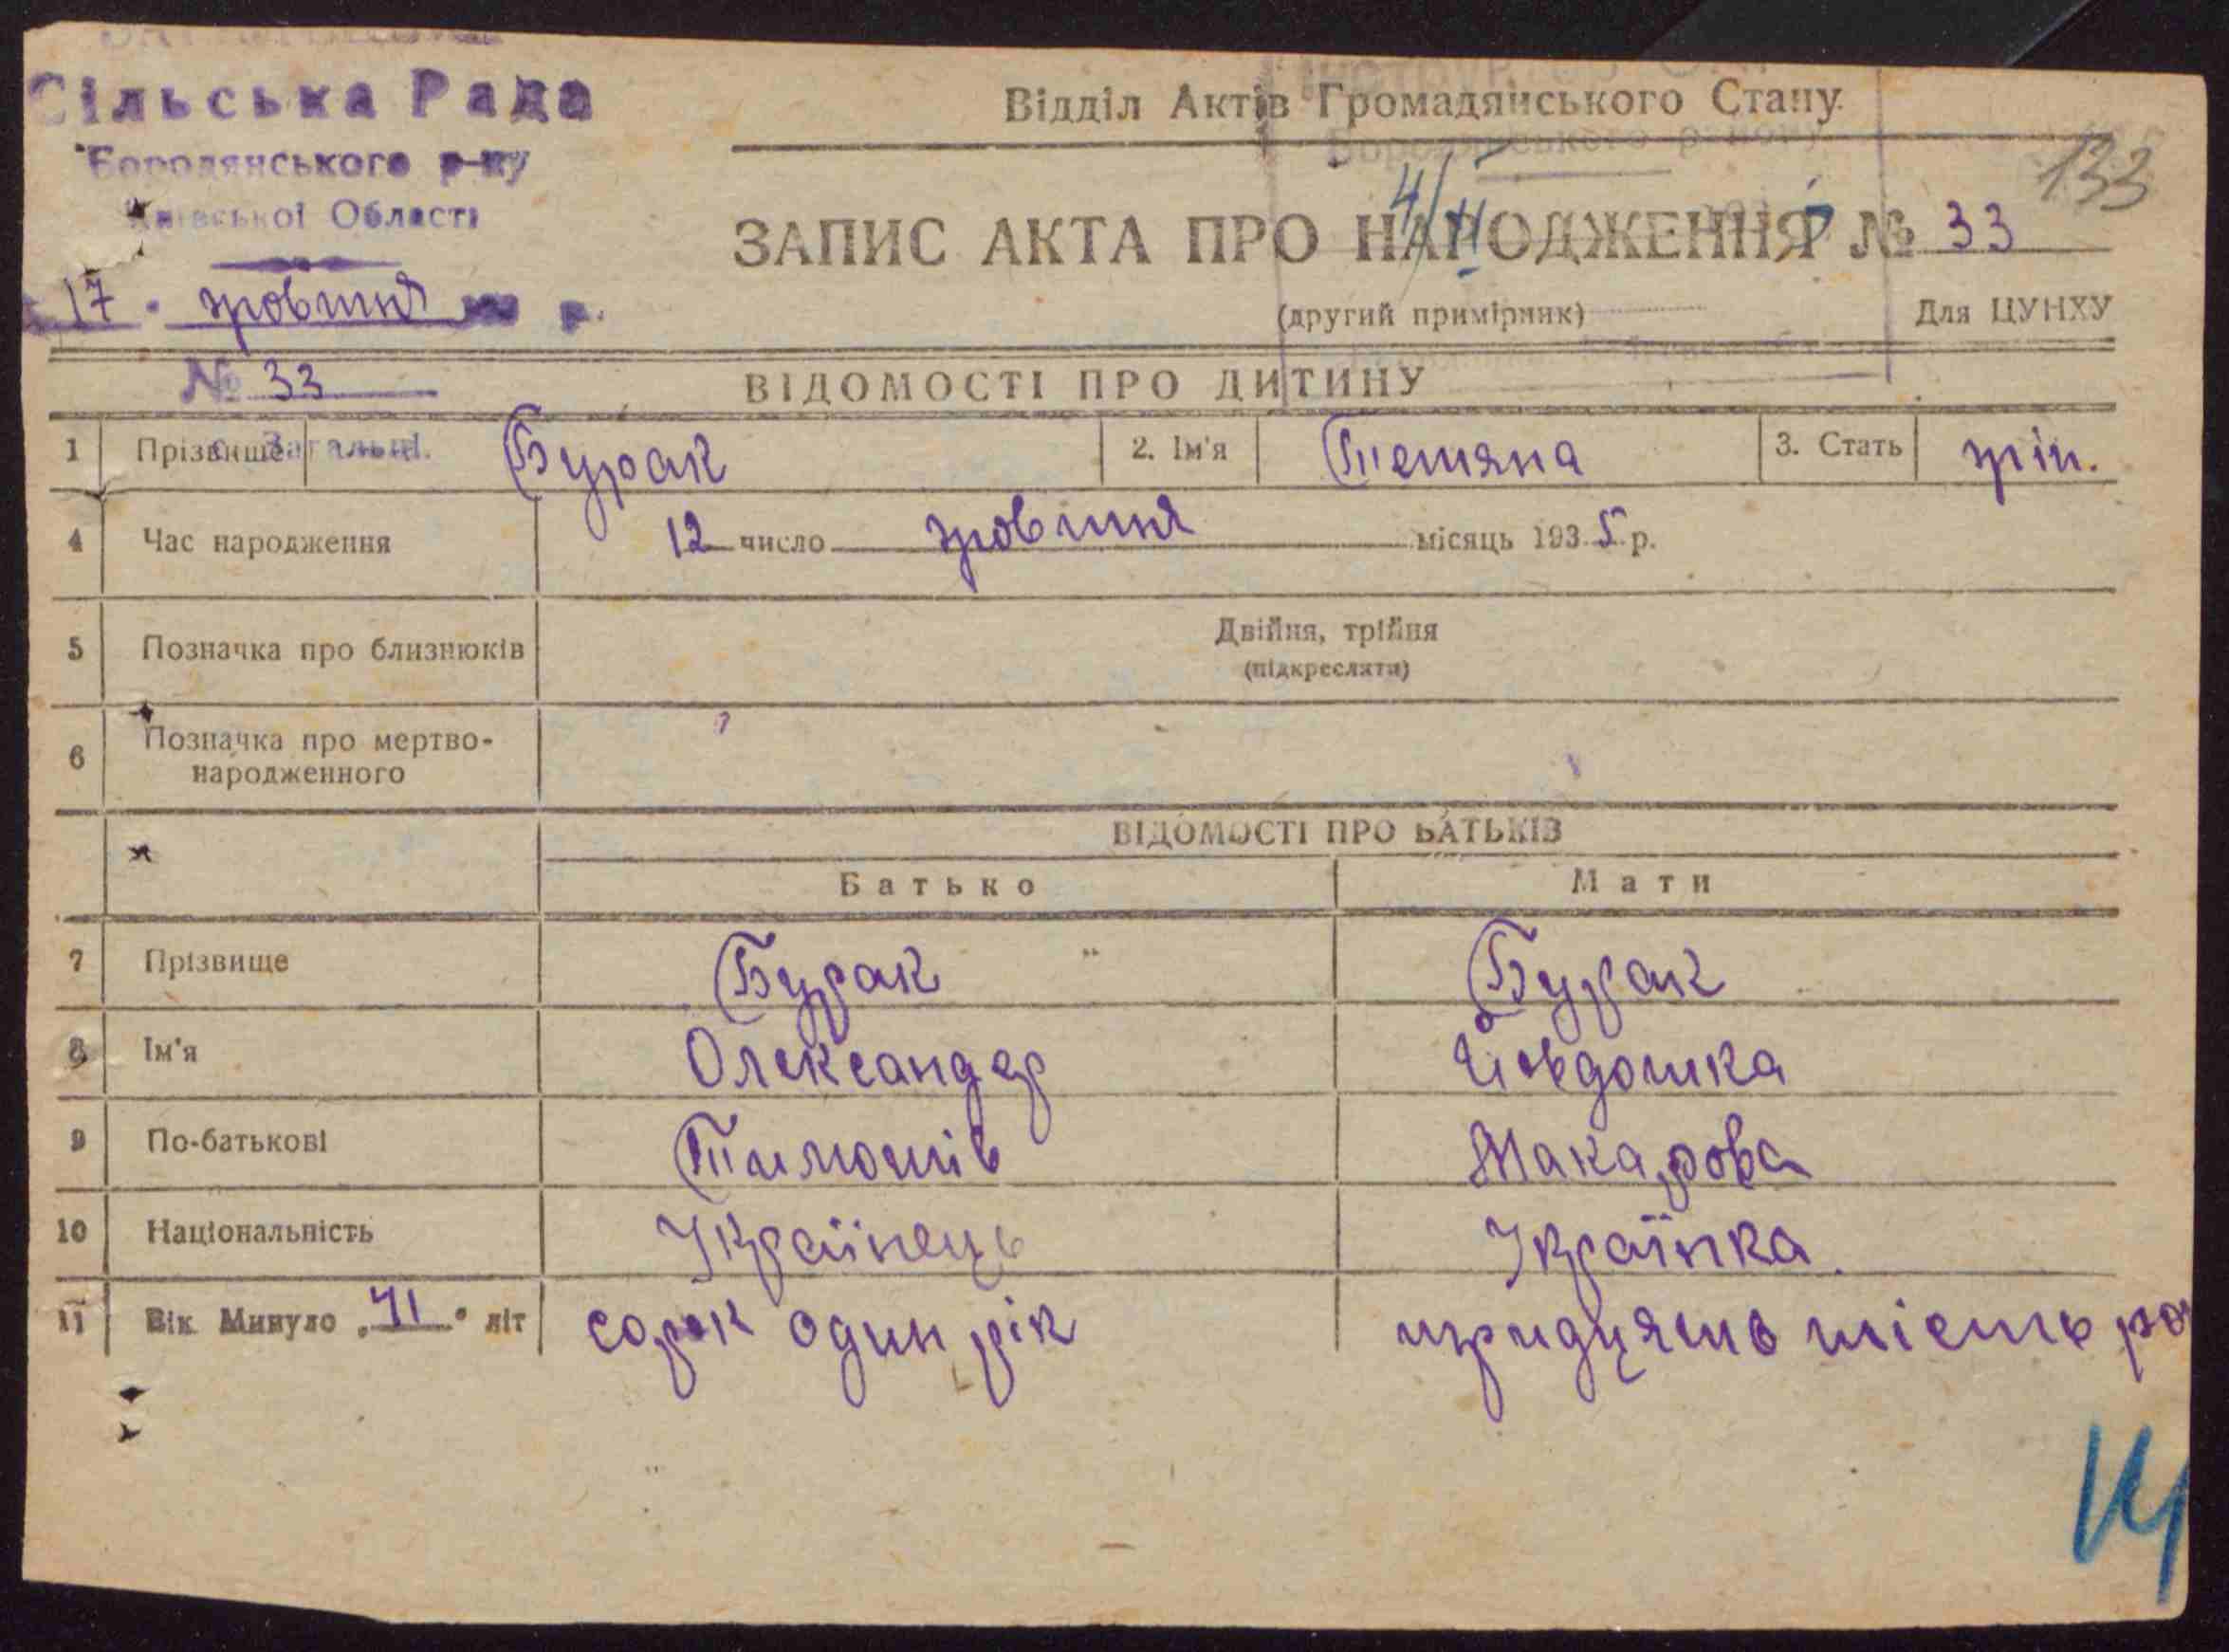 Сільська Рада
Бородянського р-ну
Київської Області
17 · жовтня р.
№ 33
с. Загальці.
Відділ Актів Громадянського Стану
133
ЗАПИС АКТА ПРО НАРОДЖЕННЯ № 33
(другий примірник) Для ЦУНХУ
ВІДОМОСТІ ПРО ДИТИНУ
1 Прізвище Бурак 2. Ім'я Тетяна 3. Стать жін.
4 Час народження 12 число жовтня місяць 1935 р.
5 Позначка про близнюків Двійня, трійня
(підкреслити)
6 Позначка про мертво-
народженного
ВІДОМОСТІ ПРО БАТЬКІВ
Батько Мати
7 Прізвище Бурак Бурак
8 Ім'я Олександер Йовдошка
9 По-батькові Тимошів Макарова
10 Національність Українець Українка
11 Вік Минуло „41" літ сорок один рік тридцять шість ро
14